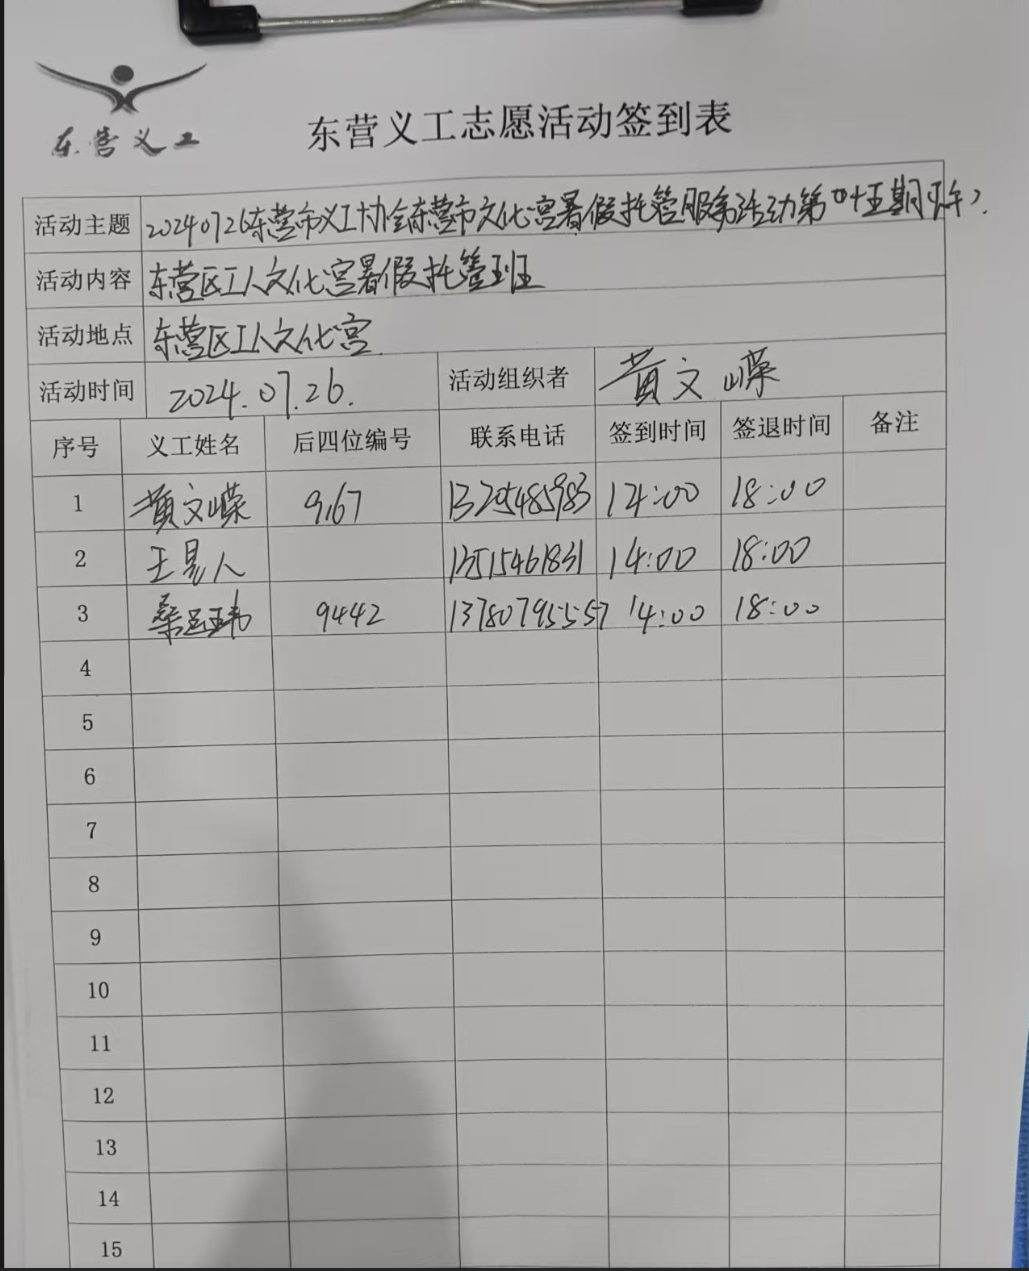 东营义工
东营义工志愿活动签到表
活动主题 20240726东营市义工协会东营市文化宫暑假托管服务活动第四十五期(下午)
活动内容 东营区工人文化宫暑假托管班
活动地点 东营区工人文化宫
活动时间 2024.07.26. 活动组织者 黄文嵘
序号 义工姓名 后四位编号 联系电话 签到时间 签退时间 备注
1 黄文嵘 9167 13295485983 14:00 18:00
2 14:00 18:00
3 9442 14:00 18:00
4
5
6
7
8
9
10
11
12
13
14
15